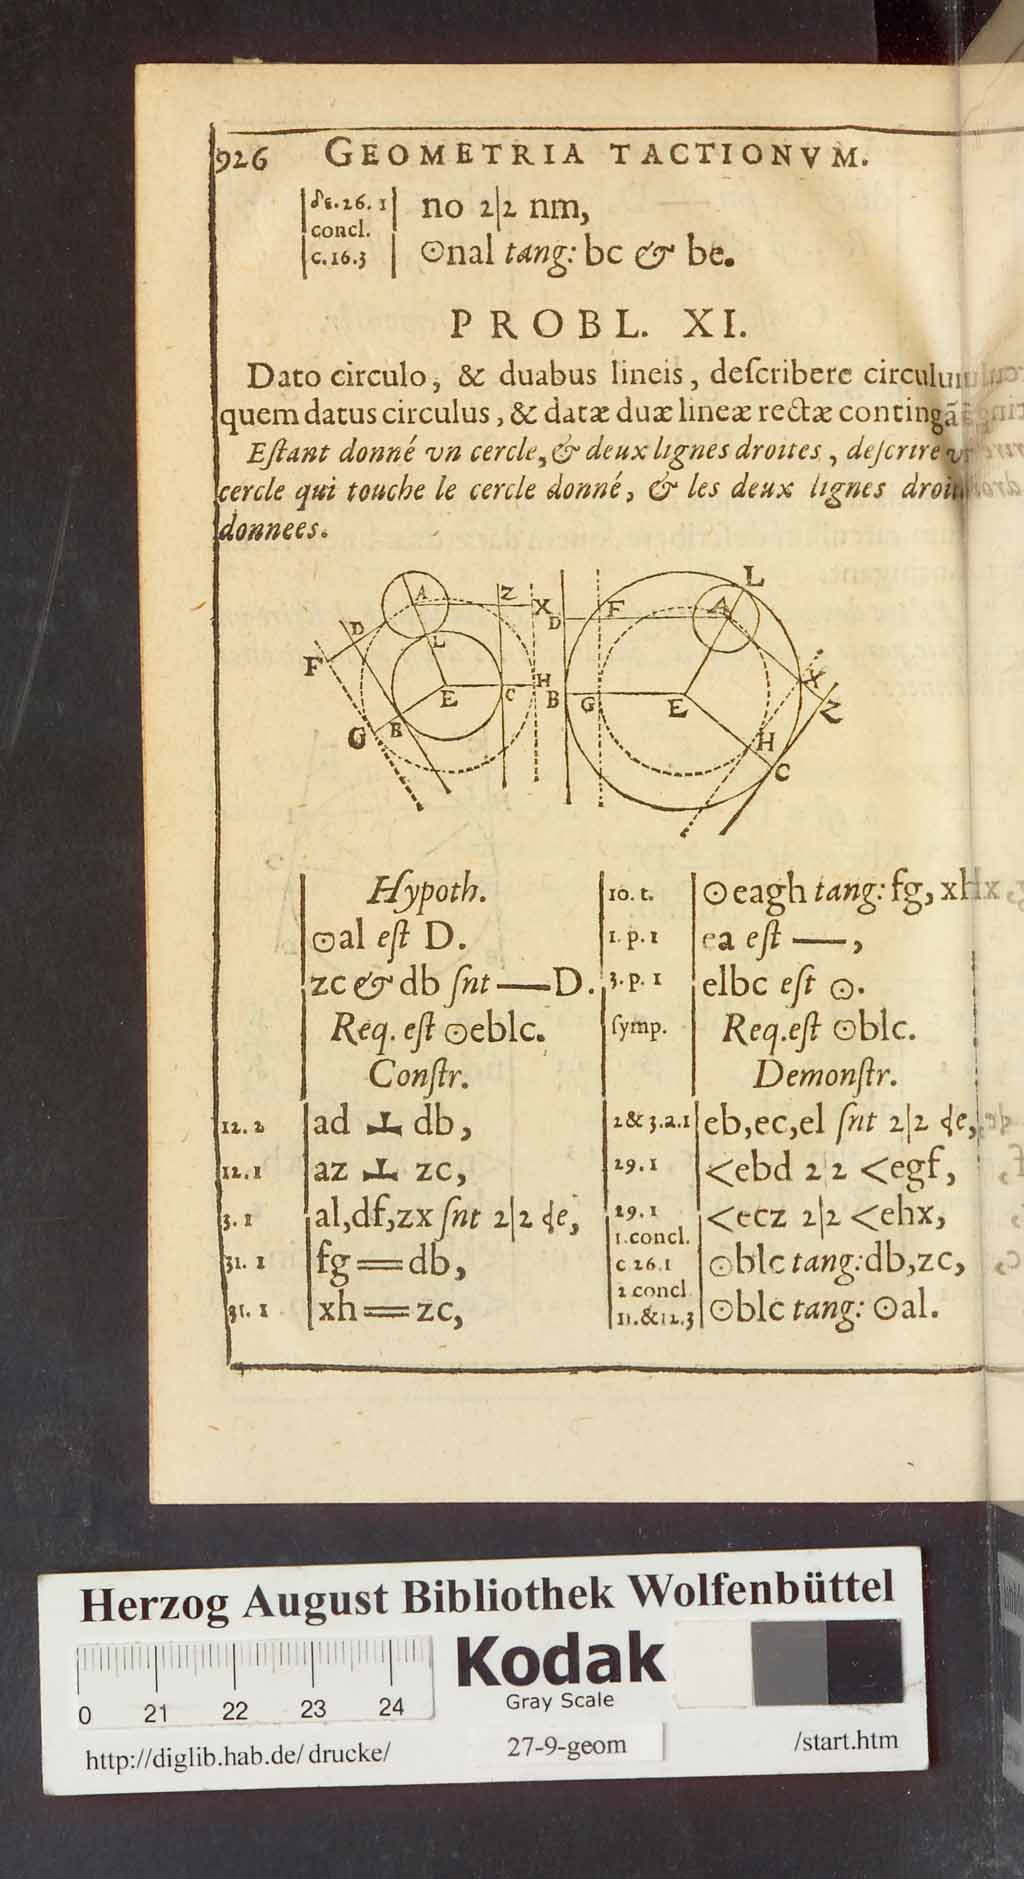 926 GEOMETRIA TACTIONVM.
δε.26.1 no 2|2 nm,
concl.
c.16.3 ⊙nal tang: bc & be.
PROBL. XI.
Dato circulo, & duabus lineis, deſcribere circulum
quem datus circulus, & datæ duæ lineæ rectæ contingāt
Eſtant donné vn cercle, & deux lignes droites, deſcrire vn
cercle qui touche le cercle donné, & les deux lignes
donnees.
A Z X D L E C H B F G
L F A D X Z B G E H C
Hypoth.
⊙al eſt D.
zc & db ſnt — D.
Req. eſt ⊙eblc.
Conſtr.
12. 2 ad ⊥ db,
12. 1 az ⊥ zc,
3. 1 al,df,zx ſnt 2|2 de,
31. 1 fg = db,
31. 1 xh = zc,
10. t. ⊙eagh tang: fg, xh
1. p. 1 ea eſt —,
3. p. 1 elbc eſt ⊙.
ſymp. Req. eſt ⊙blc.
Demonſtr.
2& 3.a.1 eb,ec,el ſnt 2|2 de,
29. 1 <ebd 2|2 <egf,
29. 1 <ecz 2|2 <ehx,
1.concl.
c 26.1 ⊙blc tang: db,zc,
2 concl
11.&12.3 ⊙blc tang: ⊙al.
Herzog August Bibliothek Wolfenbüttel
0 21 22 23 24
Kodak
Gray Scale
http://diglib.hab.de/drucke/ 27-9-geom /start.htm